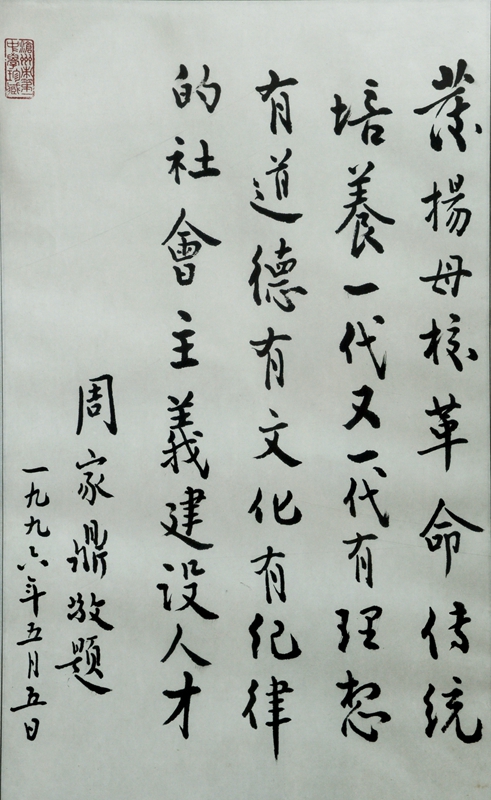 發揚母校革命传統
培養一代又一代有理想
有道德有文化有纪律
的社會主義建设人才
周家鼎敬題
一九九六年五月五日